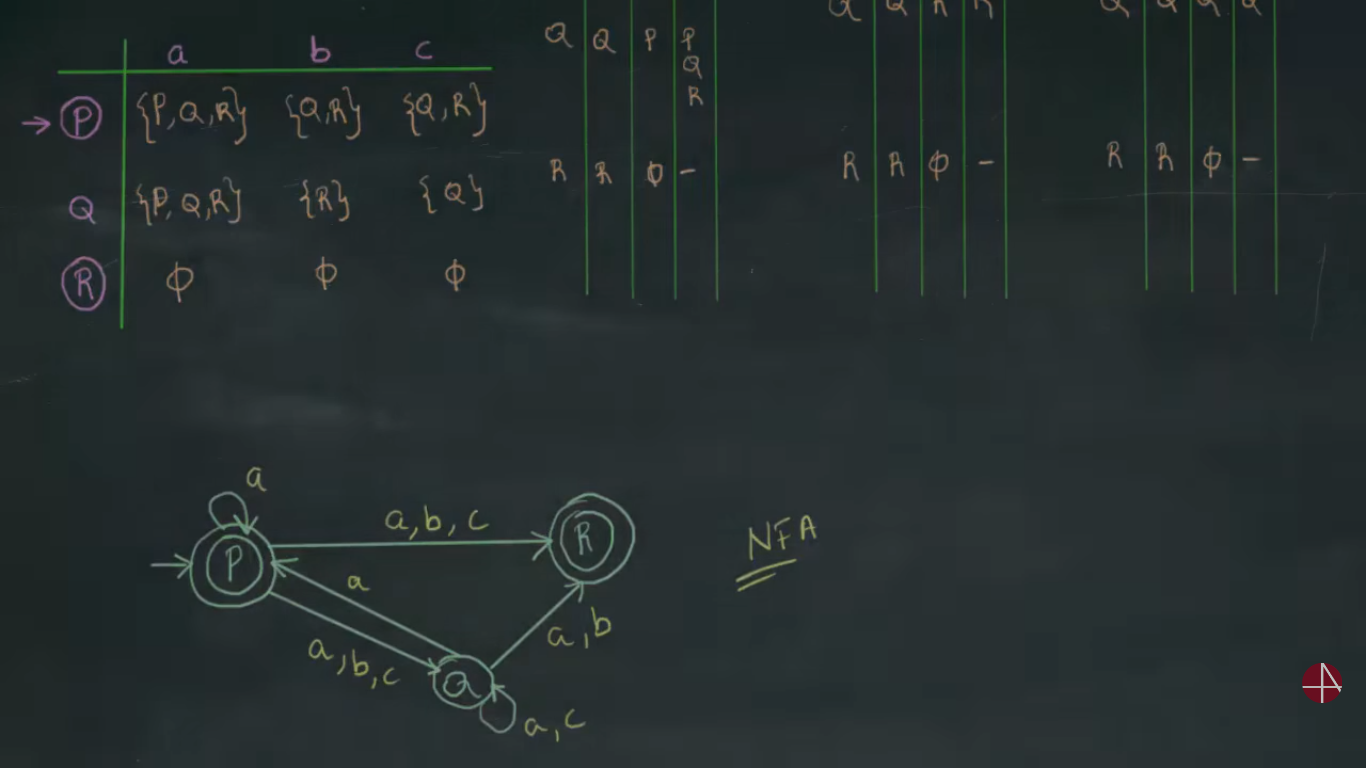 a b c
→ P {P,Q,R} {Q,R} {Q,R}
Q {P,Q,R} {R} {Q}
R ϕ ϕ ϕ
Q Q P P
Q
R
R R ϕ -
Q Q R R
R R ϕ -
Q Q Q Q
R R ϕ -
a
P
a,b,c
R
a
a,b,c
Q
a,b
a,c
NFA